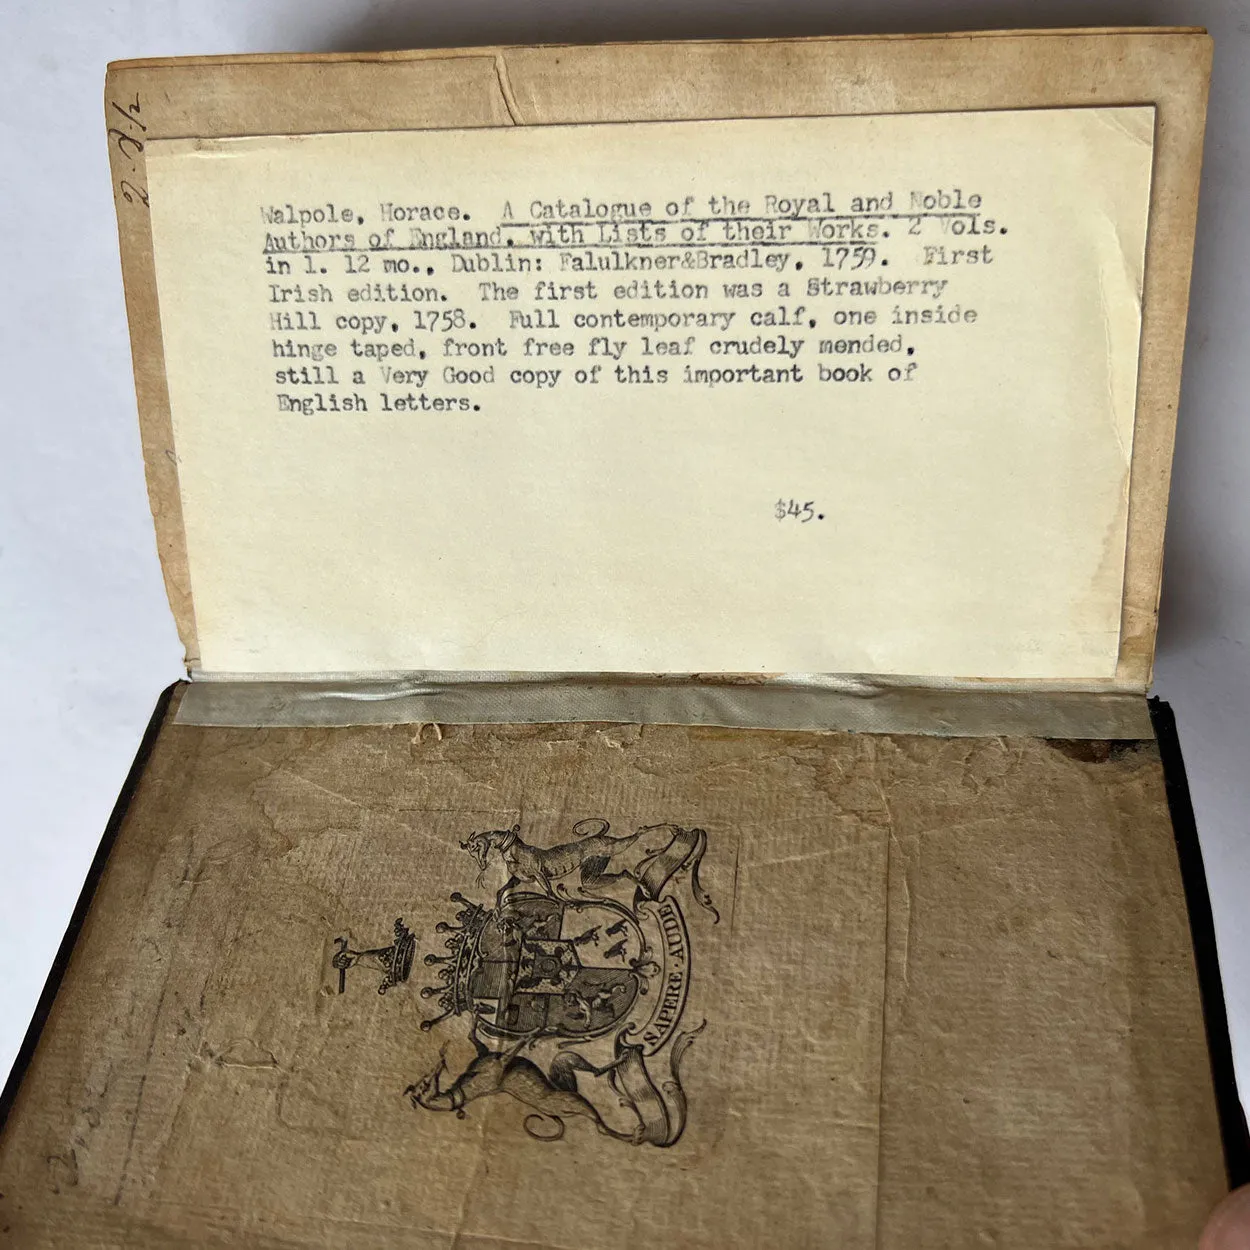 Walpole, Horace. A Catalogue of the Royal and Noble
Authors of England, with Lists of their Works. 2 Vols.
in 1. 12 mo., Dublin: Falulkner&Bradley, 1759. First
Irish edition. The first edition was a Strawberry
Hill copy, 1758. Full contemporary calf, one inside
hinge taped, front free fly leaf crudely mended,
still a Very Good copy of this important book of
English letters.
$45.
SAPERE·AUDE